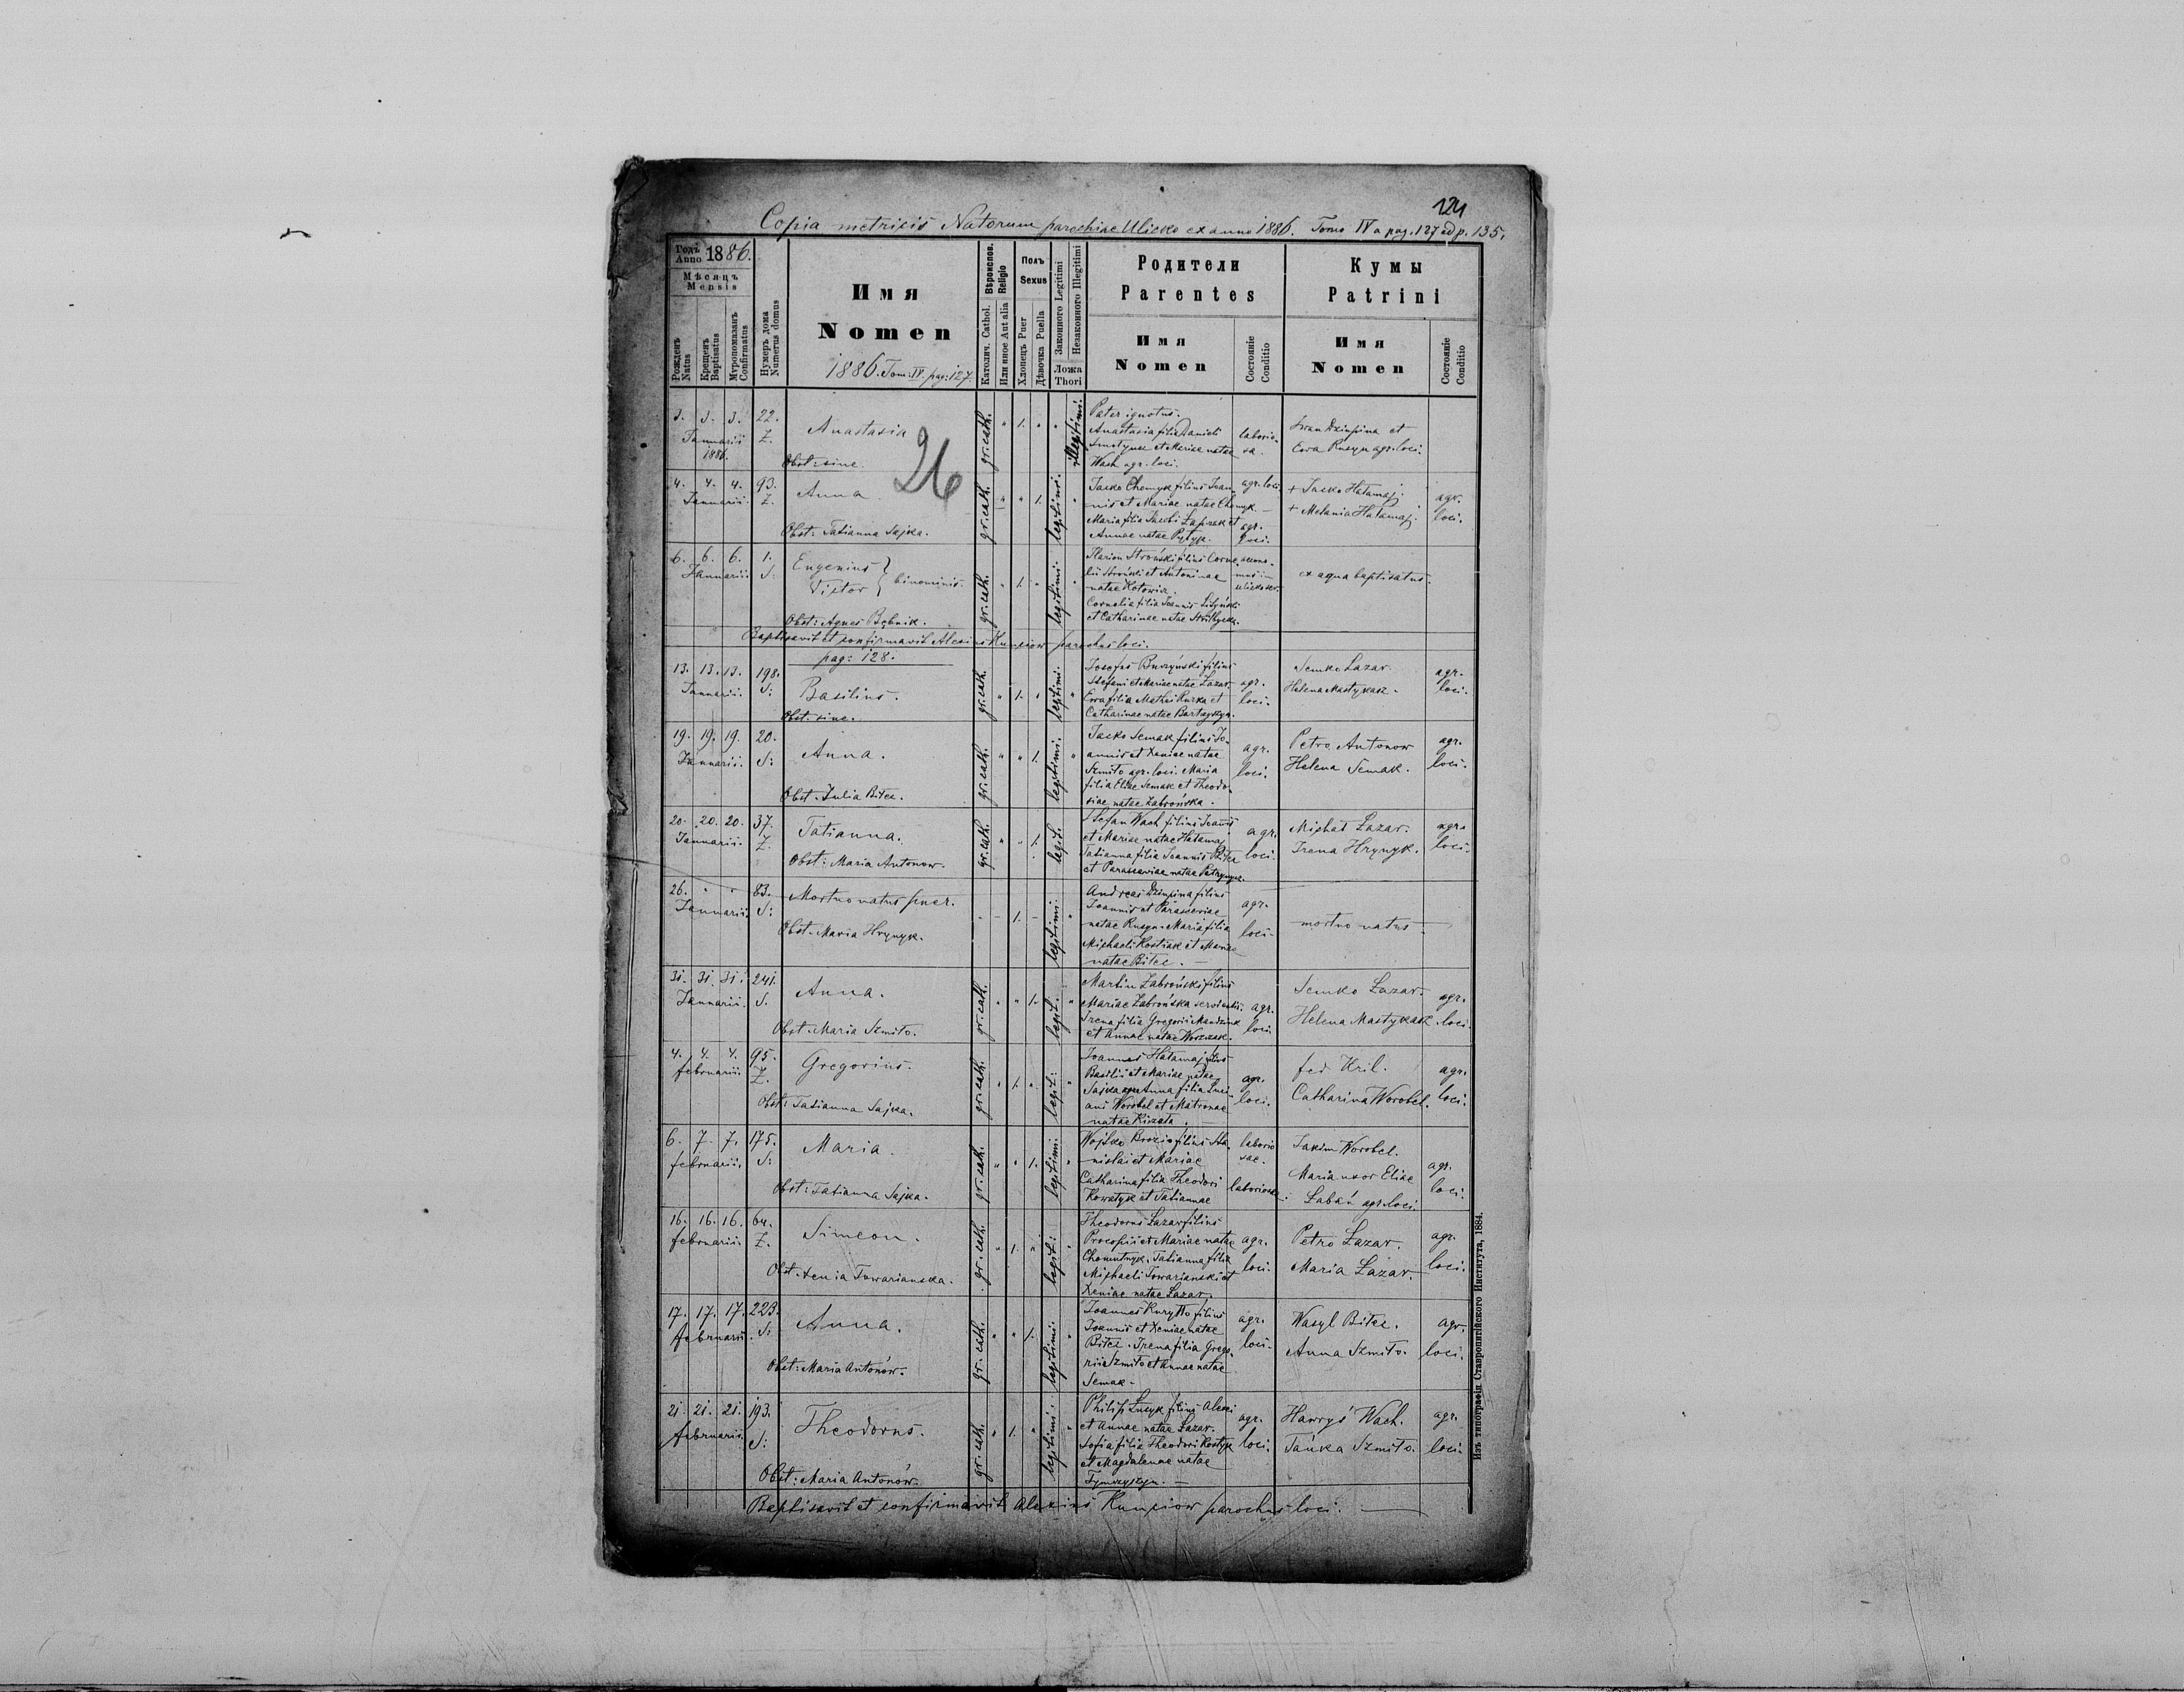 124
Copia metricis Natorum parochiae Ulicko ex anno 1886. Tomo IV a pag. 127 ad p. 135.
Годъ Anno 1886.
Мѣсяць Mensis
Рожденъ Natus
Крещенъ Baptisatus
Муропомазанъ Confirmatus
Нумеръ дома Numerus domus
Имя
Nomen
1886. Tom: IV. pag: 127.
Вѣроиспов. Religio
Католич. Cathol.
Или иное Aut alia
Полъ Sexus
Хлопецъ Puer
Дѣвочка Puella
Законного Legitimi
Незаконного Illegitimi
Ложа Thori
Родители
Parentes
Имя
Nomen
Состояніе Conditio
Кумы
Patrini
Имя
Nomen
Состояніе Conditio
26
3. 3. 3. Januarii 1886.
22. Z.
Anastasia
Obst: sine.
gr. cath. " 1. " " illegitimi.
Pater ignotus.
Anastasia filia Danieli
et Mariae natae
Wach agr. loci.
laborio-
sa.
Iwan Dziupina et
Ewa Rusyn agr. loci.
4. 4. 4. Januarii.
93. Z.
Anna.
Obst: Tatianna Sajka.
gr. cath. " " 1. legitimi. "
Jacko Chomyk filius Joan-
nis et Mariae natae Chomyk. —
Maria filia Jacobi et
Annae natae
agr. loci.
agr. loci.
+ Jacko Hatamaj.
+ Melania Hatamaj.
agr. loci.
6. 6. 6. Januarii.
1. S.
Eugenius
Victor } binominis.
Obst: Agnes Bębnik.
gr. cath. " 1. " legitimi. "
Ilarion Stroński filius Corne-
lii Stroński et Antoninae
natae Kotowicz.
Cornelia filia Joannis
et Catharinae natae
ex aqua baptisatus.
Baptisavit et confirmavit Alexius Kunciow parochus loci.
pag: 128.
13. 13. 13. Januarii.
198. S:
Basilius.
Obst. sine.
gr. cath. " 1. " legitimi. "
Josephus Buczyński filius
Stefani et Mariae natae Lazar.
Ewa filia Mathei Kurka et
Catharinae natae
agr. loci.
Semko Lazar.
Helena Mastykasz.
agr. loci.
19. 19. 19. Januarii.
20. S:
Anna.
Obst. Julia Bitec.
gr. cath. " " 1. legitimi. "
Jacko Semak filius Jo-
annis et Xeniae natae
Szmito agr. loci. Maria
filia Eliae Semak et Theodo-
siae natae Zabrońska.
agr. loci.
Petro Antonow
Helena Semak.
agr. loci.
20. 20. 20. Januarii.
37. Z.
Tatianna.
Obst: Maria Antonow.
gr. cath. " " 1. legit. "
Stefan Wach filius Joannis
et Mariae natae Hatamaj
Tatianna filia Joannis Bitec
et Parasceviae natae
agr. loci.
Michał Lazar.
Irena Hrynyk.
agr. loci.
26. " " Januarii.
83. S:
Mortuo natus puer.
Obst. Maria Hrynyk.
- - 1. - legitimi. "
Andreas Dziupina filius
Joannis et Parasceviae
natae Rusyn. Maria filia
Michaeli Kostrak et Mariae
natae Bitec. —
agr. loci.
mortuo natus —
31. 31. 31. Januarii.
241. S.
Anna.
Obst. Maria Szmito.
gr. cath. " " 1. legit. "
Martin Zabroński filius
Mariae Zabrońska
Irena filia Gregorii Mandziuk
et Annae natae Worczak.
agr. loci.
Semko Lazar.
Helena Mastykasz.
agr. loci.
4. 4. 4. februarii.
95. Z.
Gregorius.
Obst: Tatianna Sajka.
gr. cath. " 1. " legit: "
Joannes Hatamaj filius
Basilii et Mariae natae
Sajka Anna filia Luci-
ani Worobel et Matronae
natae
agr. loci.
fed Kril.
Catharina Worobel.
agr. loci.
6. 7. 7. februarii.
175. S:
Maria.
Obst: Tatianna Sajka.
gr. cath. " " 1. legitimi "
Wojtko filius Sta-
nislai et Mariae
Catharina filia Theodori
Kowatyk et Tatiannae
laborio
sae.
Jakim Worobel.
Maria uxor Eliae
Labań agr. loci.
agr. loci.
16. 16. 16. februarii.
64. Z.
Simeon.
Obst. Xenia Towarianska.
gr. cath. " 1. " legit: "
Theodorus Lazar filius
Procopii et Mariae natae
Chomutnyk. Tatianna filia
Michaeli Towarianski et
Xeniae natae Lazar.
agr. loci.
Petro Lazar.
Maria Lazar.
agr. loci.
17. 17. 17. februarii.
223. S:
Anna.
Obst: Maria Antonów.
gr. cath. " " 1. legitimi. "
Joannes Kuryłło filius
Joannis et Xeniae natae
Bitec. Irena filia Grego-
rii Szmito et Annae natae
Semak.
agr. loci.
Wasyl Bitec.
Anna Szmito.
agr. loci.
21. 21. 21. februarii.
193. S:
Theodorus.
Obst: Maria Antonów.
gr. cath. " 1. " legitimi. "
Philip Lucyk filius Alexi
et Annae natae Lazar.
Sofia filia Theodori Kostyk
et Magdalenae natae
Tymczyszyn. —
agr. loci.
Hawryś Wach.
Tańka Szmito.
agr. loci.
Baptisavit et confirmavit Alexius Kunciow parochus loci. —
Изъ типографіи Ставропигійского Института, 1884.